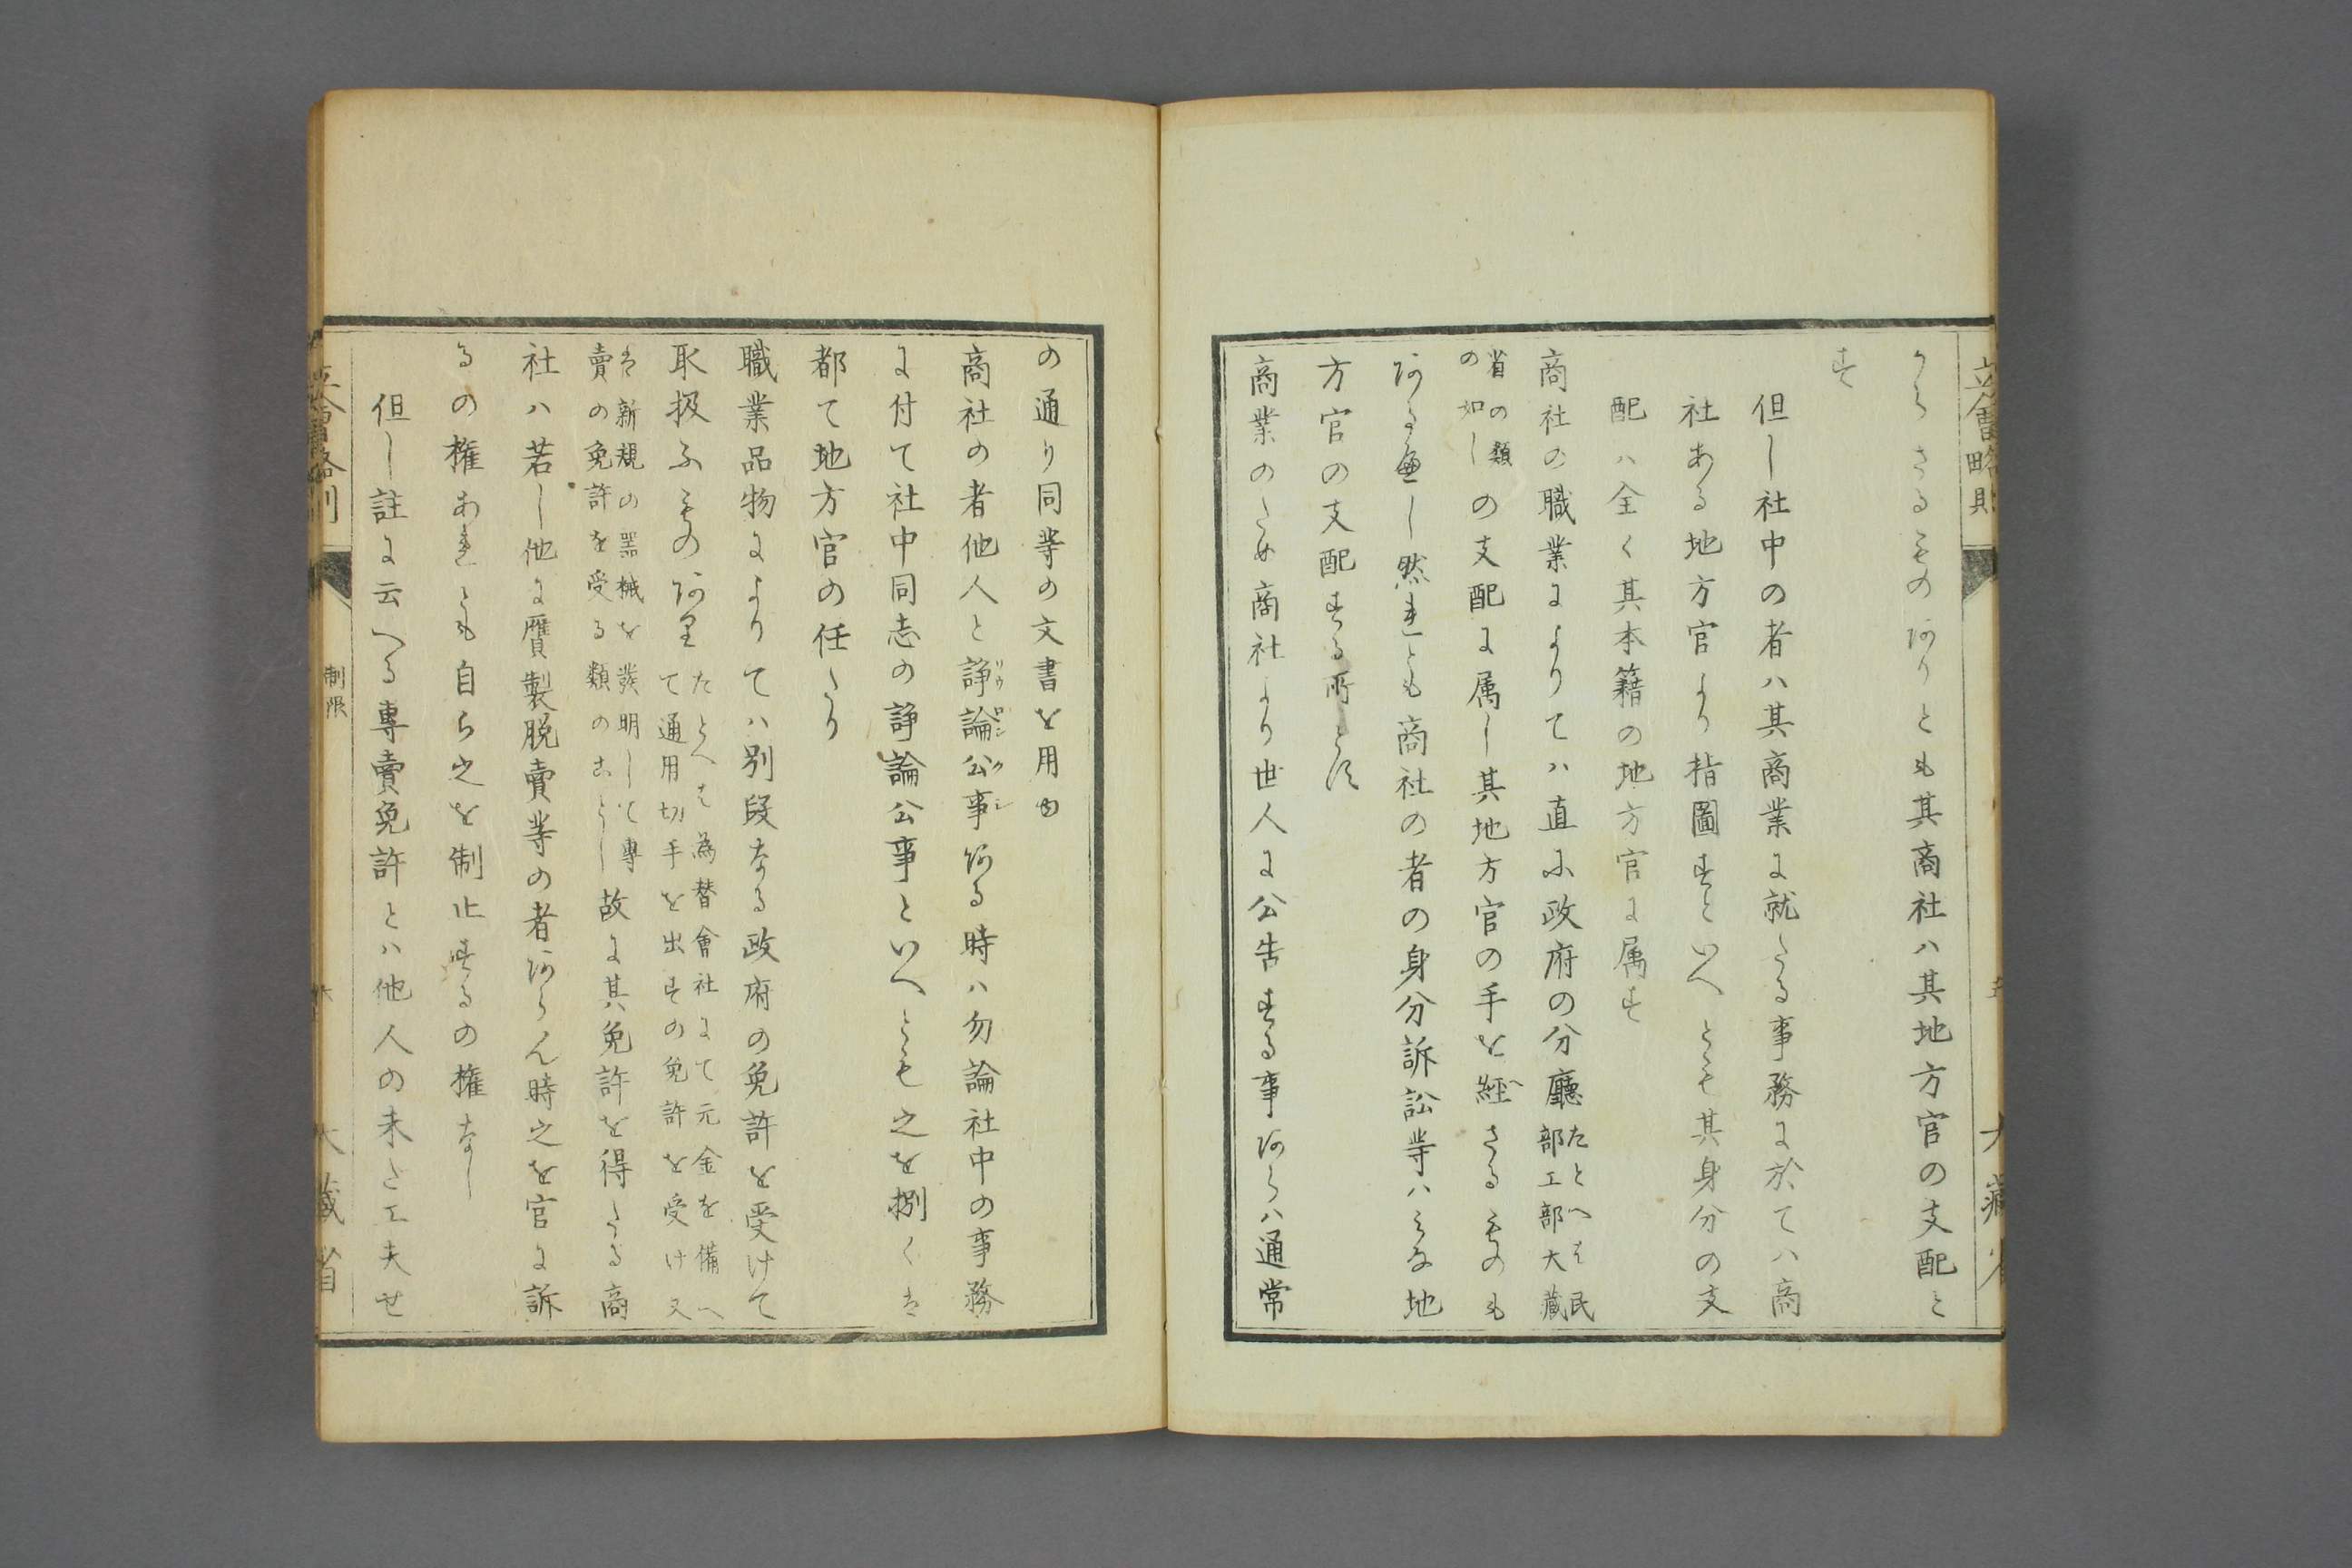 立會略則
からさるものありとも其商社ハ其地方官の支配と
す
但し社中の者ハ其商業に就たる事務に於てハ商
社ある地方官より指圖すといへとも其身分の支
配ハ全く其本籍の地方官に属す
商社の職業によりてハ直に政府の分廳たとへは民部工部大藏
省の類の如しの支配に属し其地方官の手を經さるものも
ある可し然れとも商社の者の身分訴訟等ハみな地
方官の支配する所とす
商業のため商社より世人に公告する事あらハ通常
の通り同等の文書を用ゆ
商社の者他人と諍論公事ある時ハ勿論社中の事務
に付て社中同志の諍論公事といへとも之を捌くは
都て地方官の任たり
職業品物によりてハ別段なる政府の免許を受けて
取扱ふものあり たとへは為替會社にて元金を備へて通用切手を出すの免許を受け又
は新規の器械を發明して專賣の免許を受る類のことし故に其免許を得たる商
社ハ若し他に贋製脱賣等の者あらん時之を官に訴
るの権あれとも自ら之を制止するの権なし
但し註に云へる專賣免許とハ他人の未た工夫せ
制限
大藏省